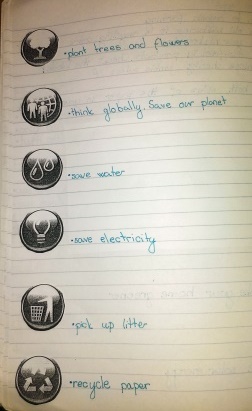 •plant trees and flowers
•think globally. Save our planet
•save water
•save electricity
•pick up litter
•recycle paper